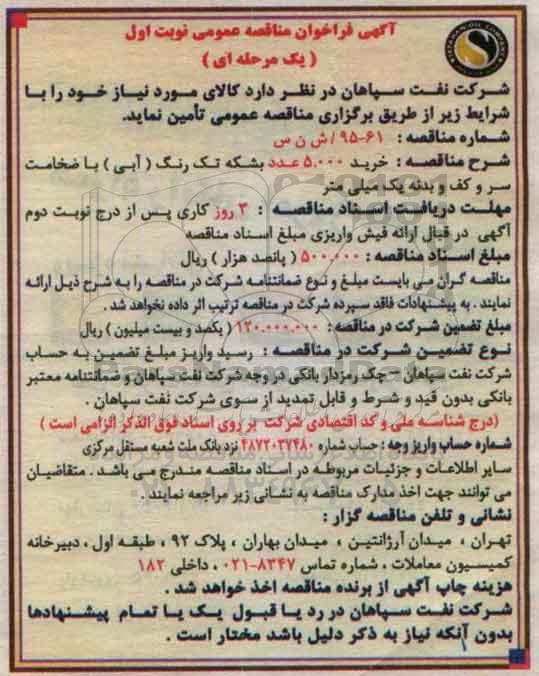 آگهی فراخوان مناقصه عمومی نوبت اول
( یک مرحله ای )
شرکت نفت سپاهان در نظر دارد کالای مورد نیاز خود را با
شرایط زیر از طریق برگزاری مناقصه عمومی تأمین نماید.
شماره مناقصه : ۶۱-۹۵/ ش ن س
شرح مناقصه : خرید ۵،۰۰۰ عدد بشکه تک رنگ ( آبی ) با ضخامت
سر و کف و بدنه یک میلی متر
مهلت دریافت اسناد مناقصه : ۳ روز کاری پس از درج نوبت دوم
آگهی در قبال ارائه فیش واریزی مبلغ اسناد مناقصه
مبلغ اسناد مناقصه : ۵۰۰،۰۰۰ ( پانصد هزار ) ریال
مناقصه گران می بایست مبلغ و نوع ضمانتنامه شرکت در مناقصه را به شرح ذیل ارائه
نمایند . به پیشنهادات فاقد سپرده شرکت در مناقصه ترتیب اثر داده نخواهد شد .
مبلغ تضمین شرکت در مناقصه : ۱۲۰،۰۰۰،۰۰۰ ( یکصد و بیست میلیون ) ریال
نوع تضمین شرکت در مناقصه : رسید واریز مبلغ تضمین به حساب
شرکت نفت سپاهان - چک رمزدار بانکی در وجه شرکت نفت سپاهان و ضمانتنامه معتبر
بانکی بدون قید و شرط و قابل تمدید از سوی شرکت نفت سپاهان .
(درج شناسه ملی و کد اقتصادی شرکت بر روی اسناد فوق الذکر الزامی است )
شماره حساب واریز وجه : حساب شماره ۴۸۷۲۰۳۷۴۸۰ نزد بانک ملت شعبه مستقل مرکزی
سایر اطلاعات و جزئیات مربوطه در اسناد مناقصه مندرج می باشد . متقاضیان
می توانند جهت اخذ مدارک مناقصه به نشانی زیر مراجعه نمایند .
نشانی و تلفن مناقصه گزار :
تهران ، میدان آرژانتین ، میدان بهاران ، پلاک ۹۲ ، طبقه اول ، دبیرخانه
کمیسیون معاملات ، شماره تماس ۸۳۴۷-۰۲۱ ، داخلی ۱۸۲
هزینه چاپ آگهی از برنده مناقصه اخذ خواهد شد .
شرکت نفت سپاهان در رد یا قبول یک یا تمام پیشنهادها
بدون آنکه نیاز به ذکر دلیل باشد مختار است .